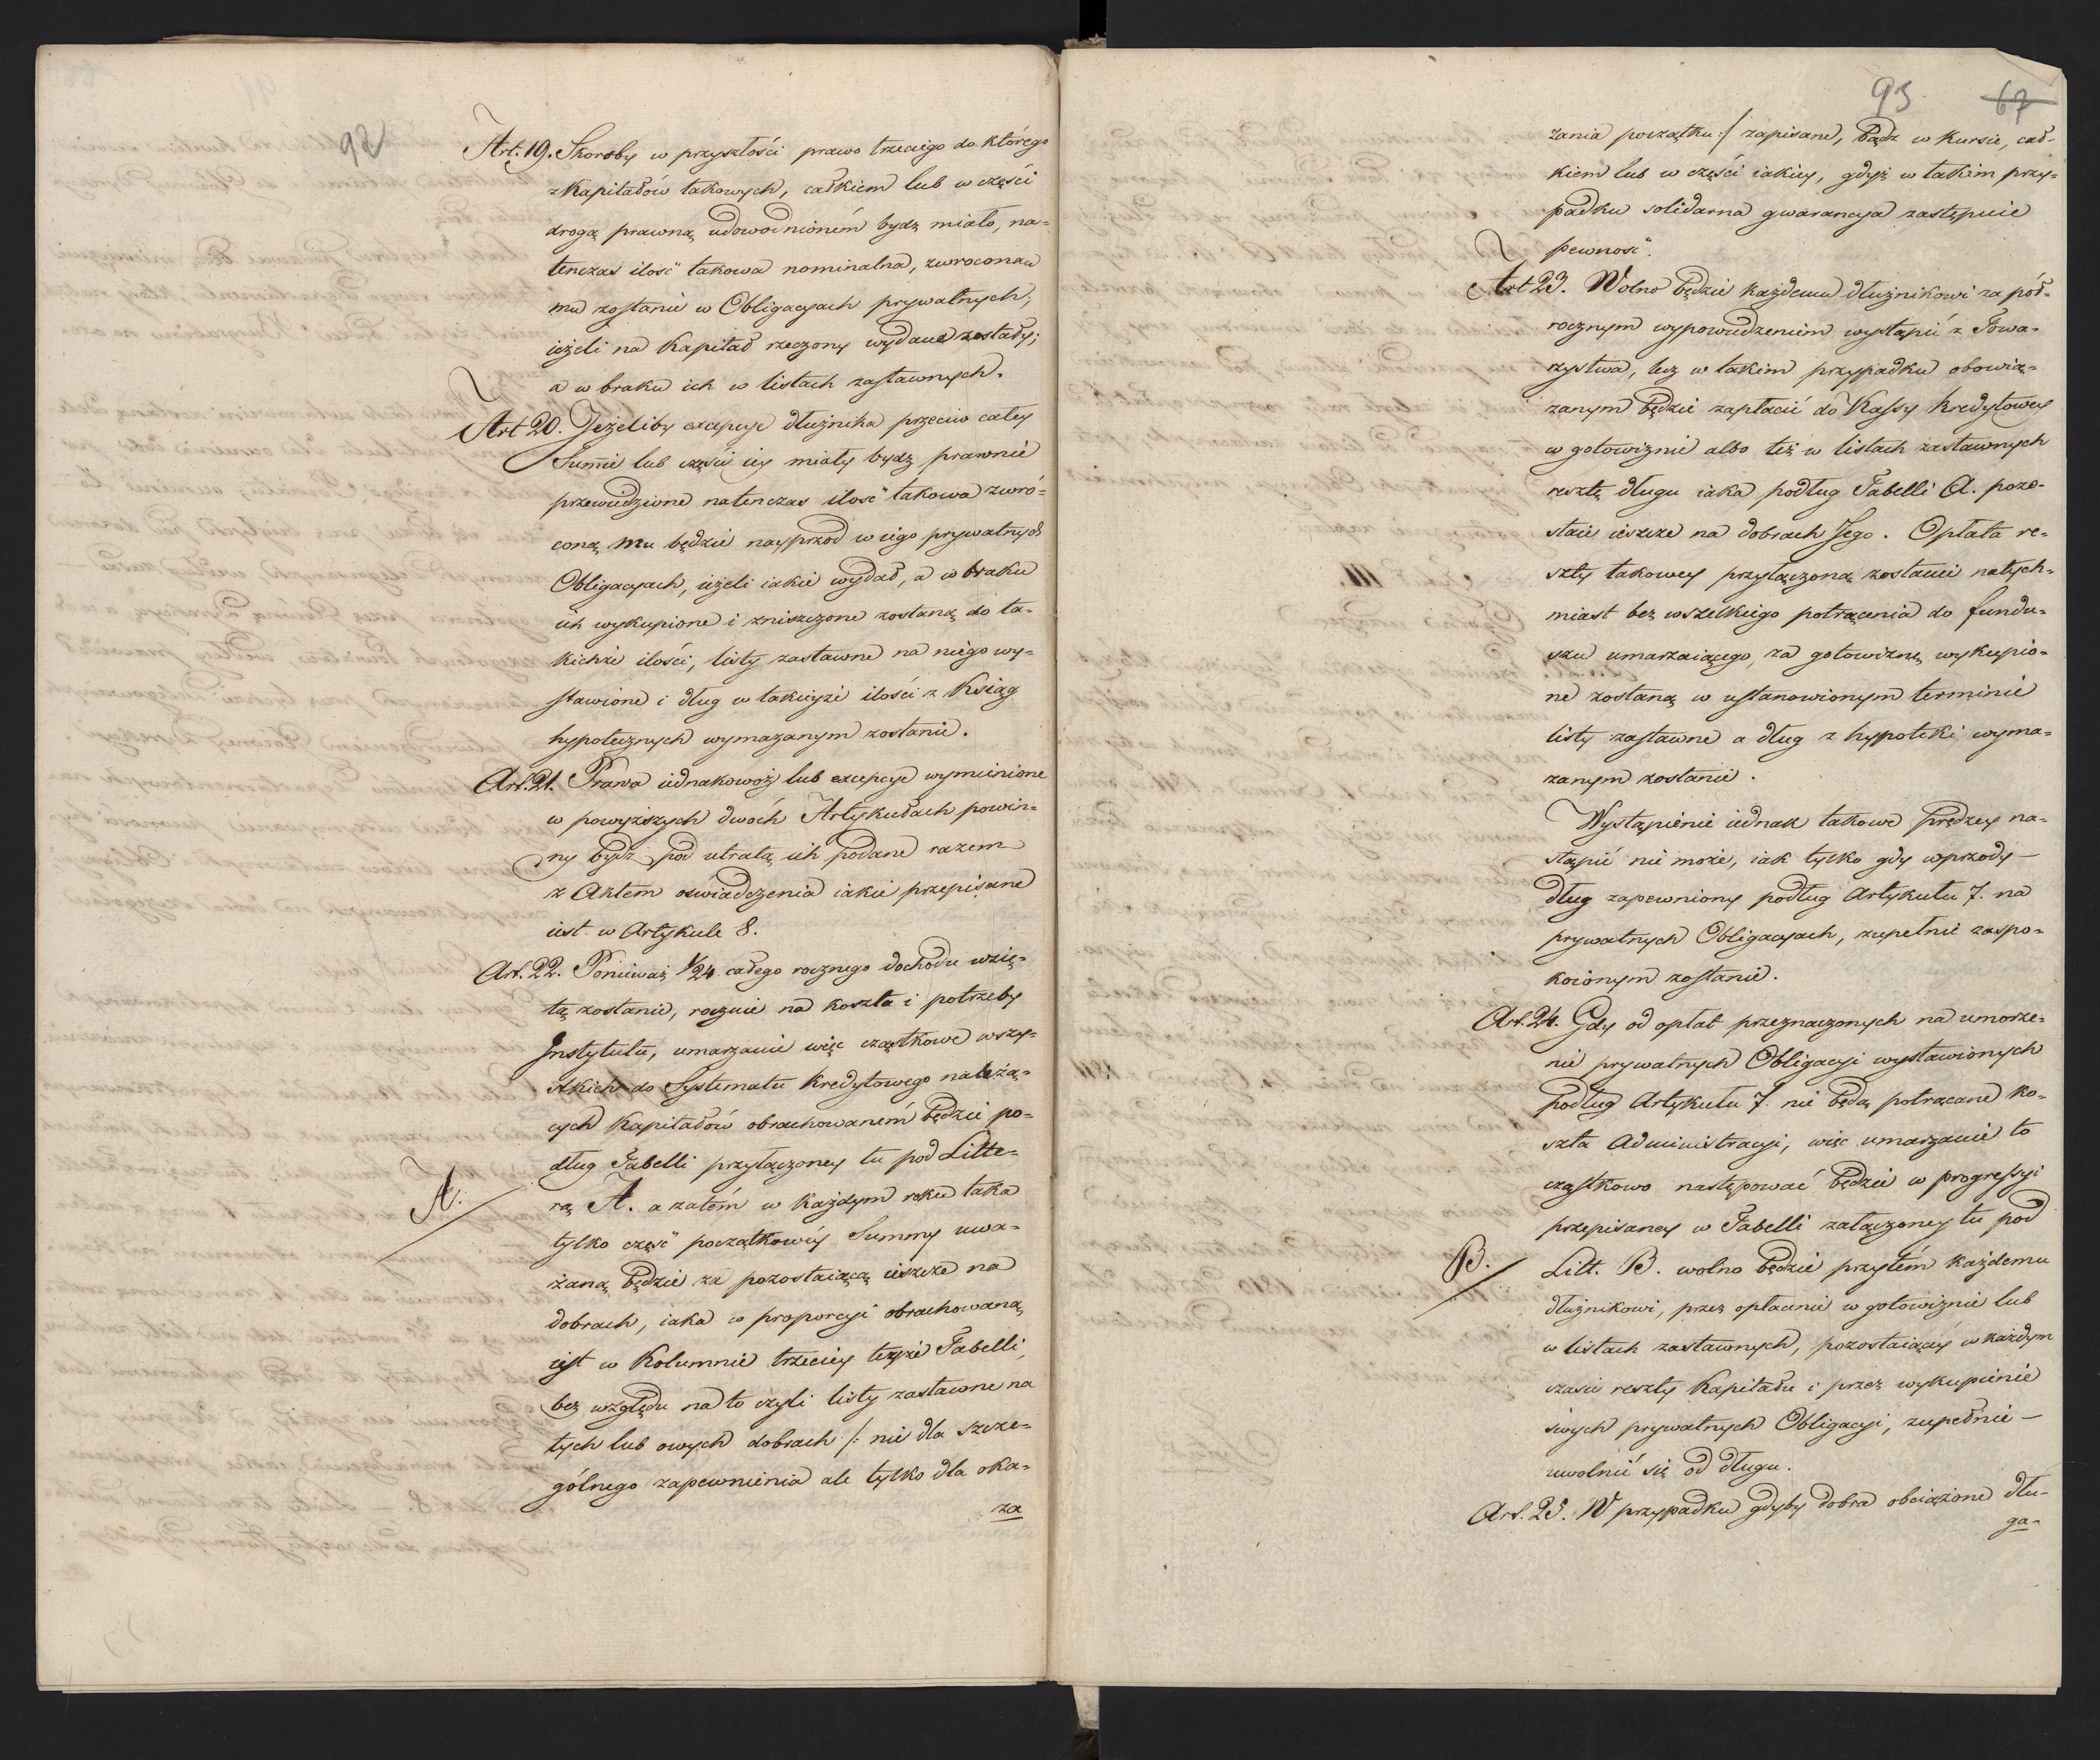 92
Art. 19. Skoroby w przyszłości prawo trzeciego do którego
z Kapitałów takowych, całkiem lub w części
drogą prawną udowodnioném bydź miało, na-
tenczas ilość takowa nominalna, zwrócona
mu zostanie w Obligacyach prywatnych,
ieżeli na Kapitał rzeczony wydane zostały;
a w braku ich w listach zastawnych.
Art 20. Jeżeliby excepcye dłużnika przeciw całey
Sum̄ie lub części iey miały bydź prawnie
przewiedzione natenczas ilość takowa zwró-
coną mu będzie nayprzód w iego prywatnych
Obligacyach, ieżeli iakie wydał, a w braku
ich wykupione i zniszczone zostaną do ta-
kieyże ilości, listy zastawne na niego wy-
stawione i dług w takieyże ilości z Ksiąg
hypotecznych wymazanym zostanie.
Art. 21. Prawa iednakowoż lub excepcye wymienione
w powyższych dwóch Artykułach powin-
ny bydź pod utratą ich podane razem
z Aktem oświadczenia iakie przepisane
iest w Artykule 8.
Art. 22. Ponieważ 1/24 całego rocznego dochodu wzię-
tą zostanie, rocznie na koszta i potrzeby
Instytutu, umarzanie więc cząstkowe wszy-
stkich do Systematu Kredytowego należą-
cych Kapitałów obrachowaném będzie po-
dług Tabelli przyłączoney tu pod Litte-
A.
rą A. a zatém w każdym roku taka
tylko część początkowéy Summy uwa-
żaną będzie za pozostaiącą ieszcze na
dobrach, iaka w proporcyi obrachowaną
iest w Kolumnie trzeciey teyże Tabelli,
bez względu na to czyli listy zastawne na
tych lub owych dobrach /: nie dla szcze-
gólnego zapewnienia ale tylko dla oka-
za
93 67
zania początku :/ zapisane, bądz w kursie, cał-
kiem lub w części iakiey, gdyż w takim przy-
padku solidarna gwarancya zastępuie
pewność.
Art 23. Wolno będzie każdemu dłużnikowi za pół-
rocznym wypowiedzeniem wystąpić z Towa-
rzystwa, lecz w takim przypadku obowią-
zanym będzie zapłacić do Kassy Kredytowey
w gotowiznie albo też w listach zastawnych
resztę długu iaka podług Tabelli A. pozo-
staie ieszcze na dobrach Jego. Opłata re-
szty takowey przyłączoną zostanie natych-
miast bez wszelkiego potrącenia do fundu-
szu umarzaiącego, za gotowiznę wykupio-
ne zostaną w ustanowionym terminie
listy zastawne a dług z hypoteki wyma-
zanym zostanie.
Wystąpienie iednak takowe prędzey na-
stąpić nie może, iak tylko gdy wprzódy
dług zapewniony podług Artykułu 7. na
prywatnych Obligacyach, zupełnie zaspo-
koionym zostanie.
Art. 24. Gdy od opłat przeznaczonych na umorze-
nie prywatnych Obligacyi wystawionych
podług Artykułu 7. nie będą potrącane ko-
szta Administracyi, więc umarzanie to
cząstkowo następować będzie w progressyi
przepisaney w Tabelli załączoney tu pod
B.
Litt. B. wolno będzie przytém każdemu
dłużnikowi, przez opłacenie w gotowiznie lub
w listach zastawnych, pozostaiącéy w każdym
czasie reszty Kapitału i przez wykupienie
swych prywatnych Obligacyi, zupełnie
uwolnić się od długu.
Art. 25. W przypadku gdyby dobra obciążone dłu-
ga-